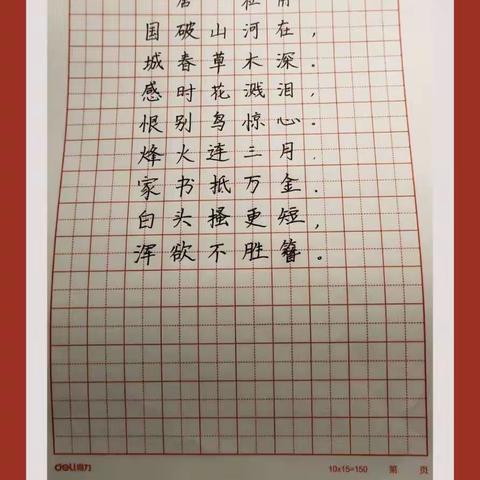 国破山河在，
城春草木深。
感时花溅泪，
恨别鸟惊心。
烽火连三月，
家书抵万金。
白头搔更短，
浑欲不胜簪。
deli得力
10x15=150 第 页